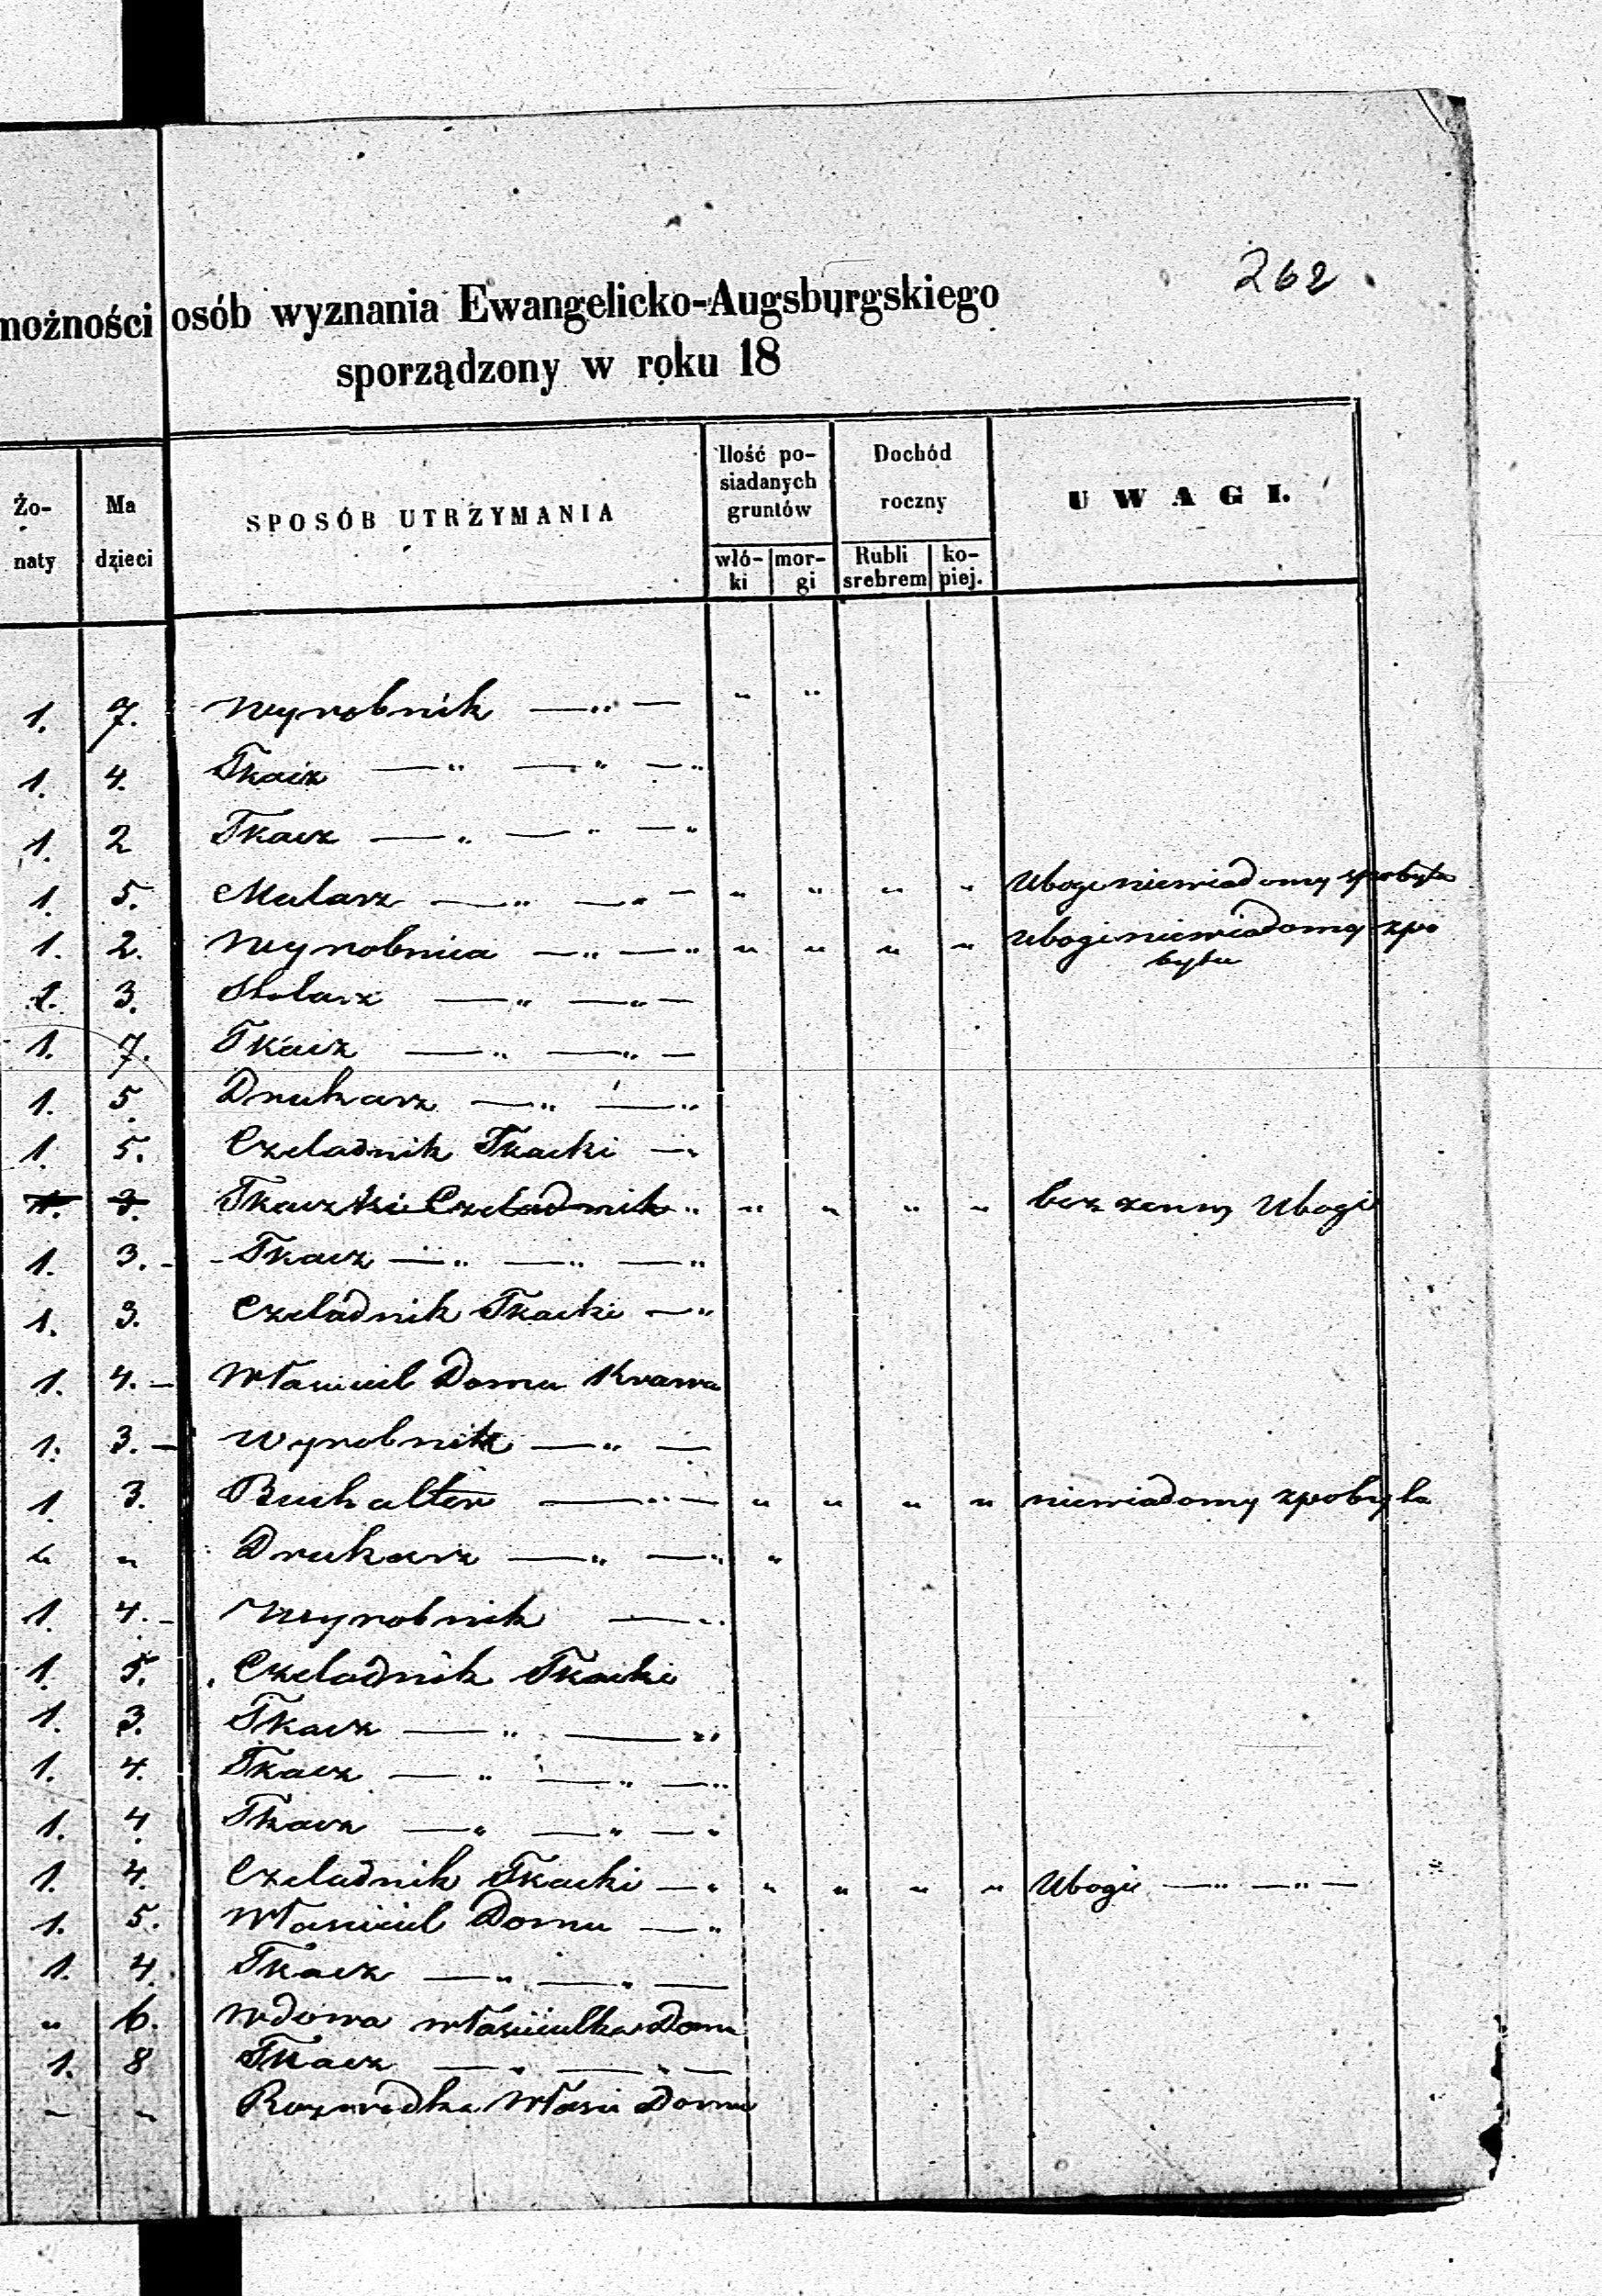 262
możności osób wyznania Ewangelicko-Augsburgskiego
sporządzony w roku 18
Żo-naty Ma dzieci SPOSÓB UTRZYMANIA Ilość po-siadanych gruntów Dochód roczny UWAGI.
włó-ki mor-gi Rubli srebrem ko-piej.
1. 7. Wyrobnik — „ — „ „
1. 4. Tkacz — „ — „ — „
1. 2 Tkacz — „ — „ — „
1. 5. Malarz — „ — „ — „ „ „ „ Ubogi niewiadomy zpobytu
1. 2. Wyrobnica — „ — „ „ „ „ „ Ubogi niewiadomy zpo
bytu
1. 3. Stolarz — „ — „ —
1. 7. Tkacz — „ — „ —
1. 5. Drukarz — „ — „
1. 5. Czeladnik Tkacki — „
1. 3. Tkaczki Czeladnik „ „ „ „ „ bez zenny Ubogi
1. 3. - - Tkacz — „ — „ — „
1. 3. Czeladnik Tkacki — „
1. 4. - Własciciel Domu Krawa
1. 3. - Wyrobnik — „ —
1. 3. Buchalter — „ — „ „ „ „ niewiadomy zpobytu
„ „ Drukarz — „ — „ „
1. 4. - Wyrobnik — „
1. 5. Czeladnik Tkacki
1. 3. Tkacz — „ — „
1. 4. Tkacz — „ — „ — „
1. 4. Tkacz — „ — „ — „
1. 4. Czeladnik Tkacki — „ „ „ „ „ Ubogi — „ — „ —
1. 5. Własciciel Domu — „
1. 4. Tkacz — „ — „ —
„ 6. Wdowa włascicielka Domu
1. 8 Tkacz — „ — „ —
„ „ Rozwodka Własci Domu